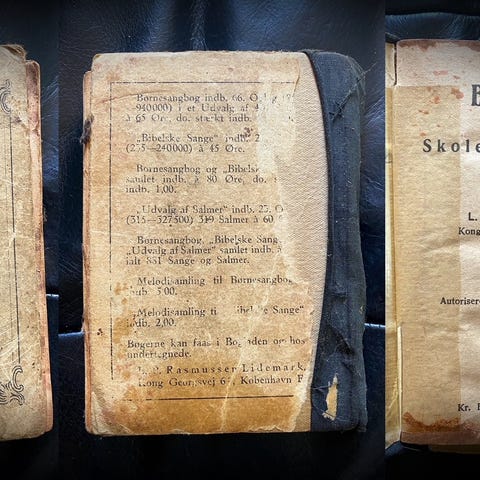 Børnesangbog indb. 66. O
940000) i et Udvalg af
à 65 Øre, do. stærkt indb.
„Bibelske Sange" indb. 2
(235—240000) à 45 Øre.
Børnesangbog og „Bibelsk
samlet indb. à 80 Øre, do.
indb. 1,00.
„Udvalg af Salmer" indb. 25. O
(315—327500) 319 Salmer à 60
Børnesangbog, „Bibelske Sang
„Udvalg af Salmer" samlet indb. à
ialt 831 Sange og Salmer.
Melodisamling til Børnesangbog
indb. 5,00.
Melodisamling ti Bibelske Sange"
indb. 2,00.
Bøgerne kan faas i Bog aden o hos
undertegnede.
L. P. Rasmusser Lidemark,
Kong Georgsvej 6 , København F
B
Skole
L.
Kong
Autorisere
Kr. F